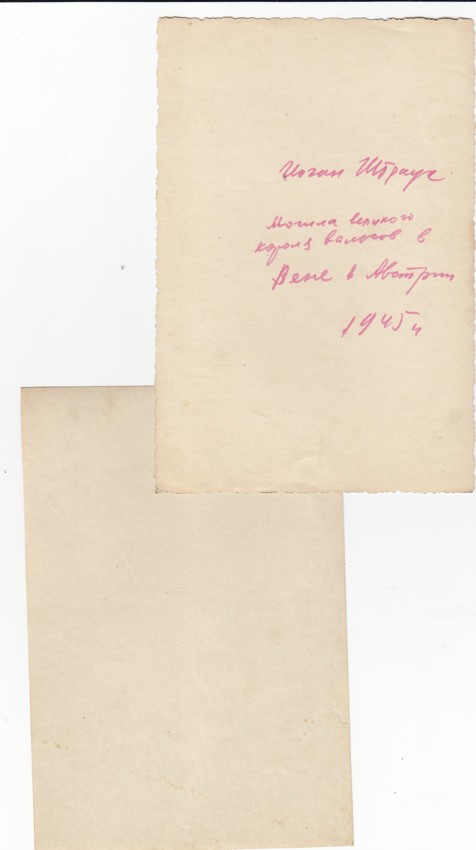 Иоган Штраус
Могила великого
короля вальсов в
Вене в Австрии
1945 г